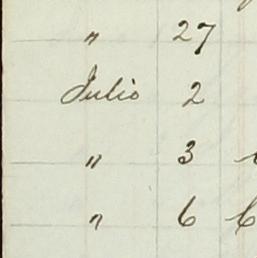 " 27
Julio 2
" 3
" 6